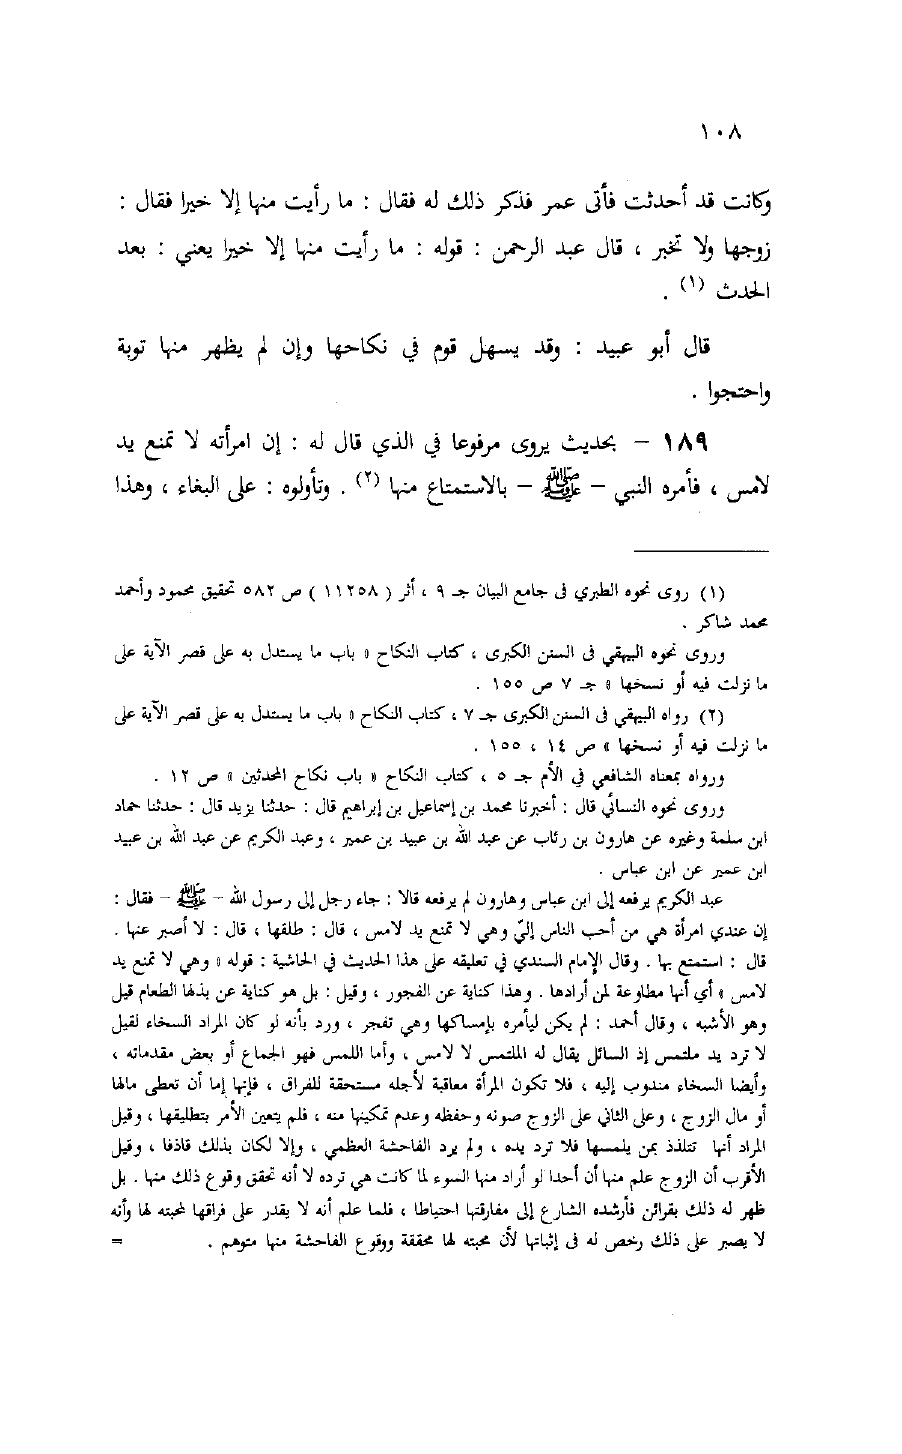 ١٠٨
وكانت قد أحدثت فأتى عمر فذكر ذلك له فقال : ما رأيت منها إلا خيرا فقال :
زوجها ولا تخبر ، قال عبد الرحمن : قوله : ما رأيت منها إلا خيرا يعني : بعد
الحدث (١) .
قال أبو عبيد : وقد يسهل قوم في نكاحها وإن لم يظهر منها توبة
واحتجوا .
١٨٩ – بحديث يروى مرفوعا في الذي قال له : إن امرأته لا تمنع يد
لامس ، فأمره النبي – ﷺ – بالاستمتاع منها (٢) . وتأولوه : على البغاء ، وهذا
(١) روى نحوه الطبري فى جامع البيان جـ ٩ ، أثر ( ١١٢٥٨ ) ص ٥٨٢ تحقيق محمود وأحمد
محمد شاكر .
وروى نحوه البيهقي فى السنن الكبرى ، كتاب النكاح « باب ما يستدل به على قصر الآية على
ما نزلت فيه أو نسخها » جـ ٧ ص ١٥٥ .
(٢) رواه البيهقي فى السنن الكبرى جـ ٧ ، كتاب النكاح « باب ما يستدل به على قصر الآية على
ما نزلت فيه أو نسخها » ص ١٤ ، ١٥٥ .
ورواه بمعناه الشافعي في الأم جـ ٥ ، كتاب النكاح « باب نكاح المحدثين » ص ١٢ .
وروى نحوه النسائي قال : أخبرنا محمد بن إسماعيل بن إبراهيم قال : حدثنا يزيد قال : حدثنا حماد
ابن سلمة وغيره عن هارون بن رئاب عن عبد الله بن عبيد بن عمير ، وعبد الكريم عن عبد الله بن عبيد
ابن عمير عن ابن عباس .
عبد الكريم يرفعه إلى ابن عباس وهارون لم يرفعه قالا : جاء رجل إلى رسول الله – ﷺ – فقال :
إن عندي امرأة هي من أحب الناس إليّ وهي لا تمنع يد لامس ، قال : طلقها ، قال : لا أصبر عنها .
قال : استمتع بها . وقال الإمام السندي في تعليقه على هذا الحديث في الحاشية : قوله « وهي لا تمنع يد
لامس » أي أنها مطاوعة لمن أرادها . وهذا كناية عن الفجور ، وقيل : بل هو كناية عن بذلها الطعام قيل
وهو الأشبه ، وقال أحمد : لم يكن ليأمره بإمساكها وهي تفجر ، ورد بأنه لو كان المراد السخاء لقيل
لا ترد يد ملتمس إذ السائل يقال له الملتمس لا لامس ، وأما اللمس فهو الجماع أو بعض مقدماته ،
وأيضا السخاء مندوب إليه ، فلا تكون المرأة معاقبة لأجله مستحقة للفراق ، فإنها إما أن تعطى مالها
أو مال الزوج ، وعلى الثاني على الزوج صونه وحفظه وعدم تمكينها منه ، فلم يتعين الأمر بتطليقها ، وقيل
المراد أنها تتلذذ بمن يلمسها فلا ترد يده ، ولم يرد الفاحشة العظمي ، وإلا لكان بذلك قاذفا ، وقيل
الأقرب أن الزوج علم منها أن أحدا لو أراد منها السوء لما كانت هي ترده لا أنه تحقق وقوع ذلك منها . بل
ظهر له ذلك بقرائن فأرشده الشارع إلى مفارقتها احتياطا ، فلما علم أنه لا يقدر على فراقها لمحبته لها وأنه
لا يصبر على ذلك رخص له فى إثباتها لأن محبته لها محققة ووقوع الفاحشة منها متوهم . =